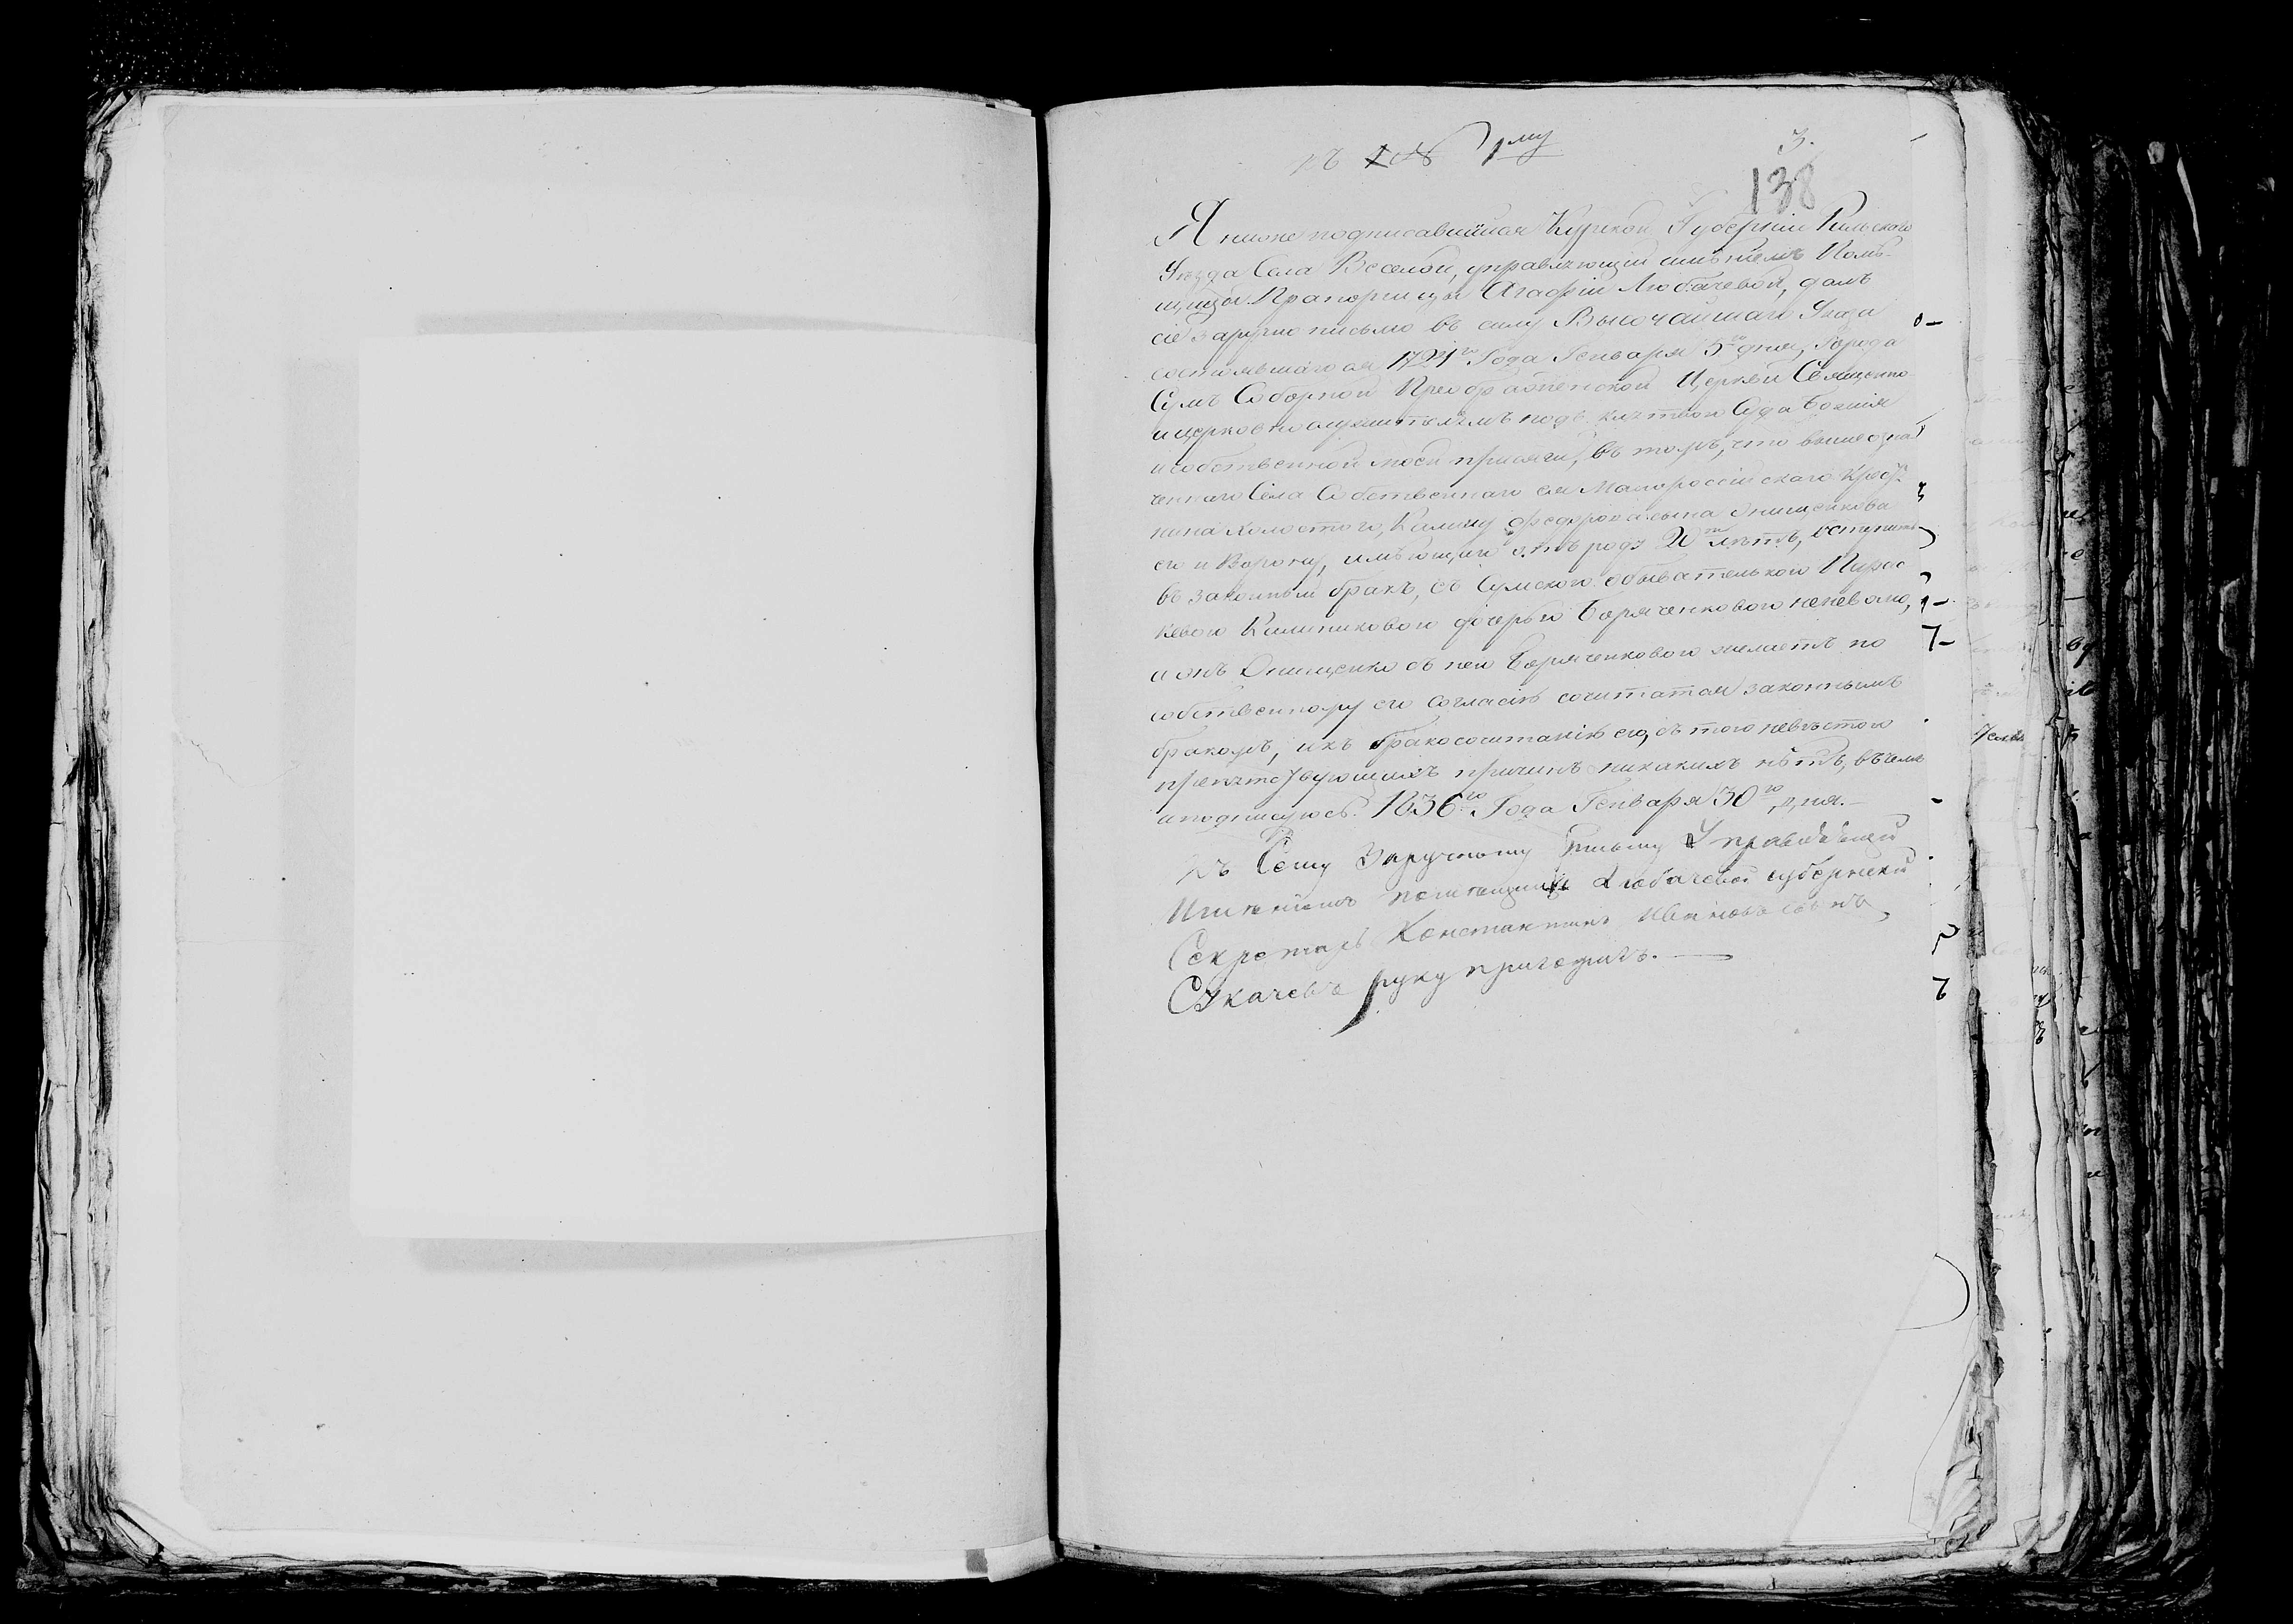 къ 1му
3.
138
Я ниже подписавшійся Курской Губерніи Рыльского
Уезда Села Веселой, управляющій имѣніемъ Помѣ-
щицы Прапорщицы Агафіи Любачевой, далъ
сіе заручно письмо въ силу Высочайшаго Указа
состоявшагося 1724го Года Генваря 5го дня, Города
Сумъ Соборной Преображенской Церкви Священно
и церковнослужителямъ подъ клятвою Суда Божія
и собственной моей присяги, въ томъ, что выше озна
ченнаго Села Собственнаго ея Малороссійскаго Крест.
нина холостого, Калину Федорова сына Онищенкова
его и Ворону, имѣющій отъ роду 20ть лѣтъ, вступить
въ законный бракъ, съ Сумскою обывательскою Парас
кевою Калиниковою дочерью Борченковою неневолю,
и онъ Онищенко съ нею Борченковою желаетъ по
собственному его согласію сочитатся законнымъ
бракомъ, и къ бракосочитанію его, съ тою невѣстою
препятствующихъ причинъ никакихъ нѣтъ, въ чемъ
и подписуюсь. 1836го Года Генваря 30го дня.
Къ Сему Заручному письму Управляющей
Имѣніемъ помещицы Любачевой губернски
Секретарь Константинъ Ивановъ сынъ
Сукачевъ руку приложилъ.